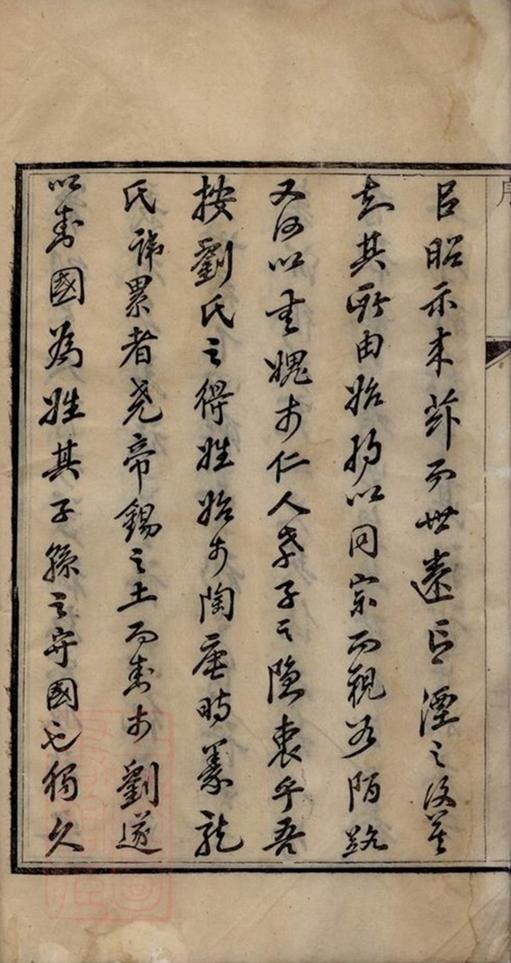 㠯昭示来茲而世遠言湮之後莫
知其所由始將以同宗而視若陌路
又何以無媿於仁人孝子之隱衷乎吾
按劉氏之得姓始於陶唐時豢龍
氏諱累者堯帝錫之土而封於劉遂
以封國為姓其子孫之守國也獨久